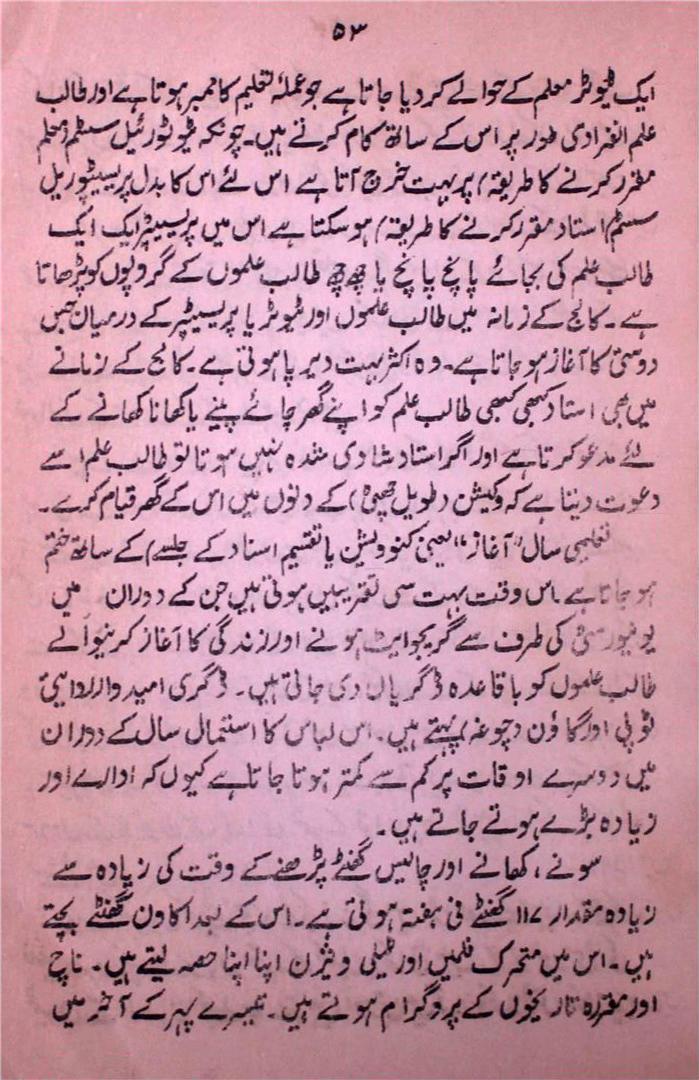 ۵۳
ایک ٹیوٹر معلم کے حوالے کردیا جاتا ہے جو عملۂ تعلیم کا ممبر ہوتا ہے اور طالب
علم انفرادی طور پر اس کے ساتھ کام کرتے ہیں۔ چونکہ ٹیوٹورئیل سسٹم (معلم
مقرر کرنے کا طریقہ) پر بہت خرچ آتا ہے اس لئے اس کا بدل پریسیپٹوریل
سسٹم (استاد مقرر کرنے کا طریقہ) ہوسکتا ہے اس میں پریسیپٹر ایک ایک
طالب علم کی بجائے پانچ پانچ یا چھ چھ طالب علموں کے گروپوں کو پڑھاتا
ہے۔ کالج کے زمانہ میں طالب علموں اور ٹیوٹر یا پریسیپٹر کے درمیان جس
دوستی کا آغاز ہوجاتا ہے۔ وہ اکثر بہت دیر پا ہوتی ہے۔ کالج کے زمانے
میں بھی استاد کبھی کبھی طالب علم کو اپنے گھر چائے پینے یا کھانا کھانے کے
لئے مدعو کرتا ہے اور اگر استاد شادی شدہ نہیں ہوتا تو طالب علم اسے
دعوت دیتا ہے کہ وکیشن (طویل چھٹی) کے دنوں میں اس کے گھر قیام کرے۔
تعلیمی سال "آغاز" (یعنی کنوویشن یا تقسیم اسناد کے جلسے) کے ساتھ ختم
ہوجاتا ہے۔ اس وقت بہت سی تقریبیں ہوتی ہیں جن کے دوران میں
یونیورسٹی کی طرف سے گریجوایٹ ہونے اور زندگی کا آغاز کرنیوالے
طالب علموں کو باقاعدہ ڈگریاں دی جاتی ہیں۔ ڈگری امیدوار روایتی
ٹوپی اور گاؤن (چوغہ) پہنتے ہیں۔ اس لباس کا استمال سال کے دوران
میں دوسرے اوقات پر کم سے کمتر ہوتا جاتا ہے کیوں کہ ادارے اور
زیادہ بڑے ہوتے جاتے ہیں۔
سونے، کھانے اور چالیس گھنٹے پڑھنے کے وقت کی زیادہ سے
زیادہ مقدار ۱۱۷ گھنٹے فی ہفتہ ہوتی ہے۔ اس کے بعد اکاون گھنٹے بچتے
ہیں۔ اس میں متحرک فلمیں اور ٹیلی ویژن اپنا اپنا حصہ لیتے ہیں۔ ناچ
اور مقررہ تاریخوں کے پروگرام ہوتے ہیں۔ تیسرے پہر کے آخر میں